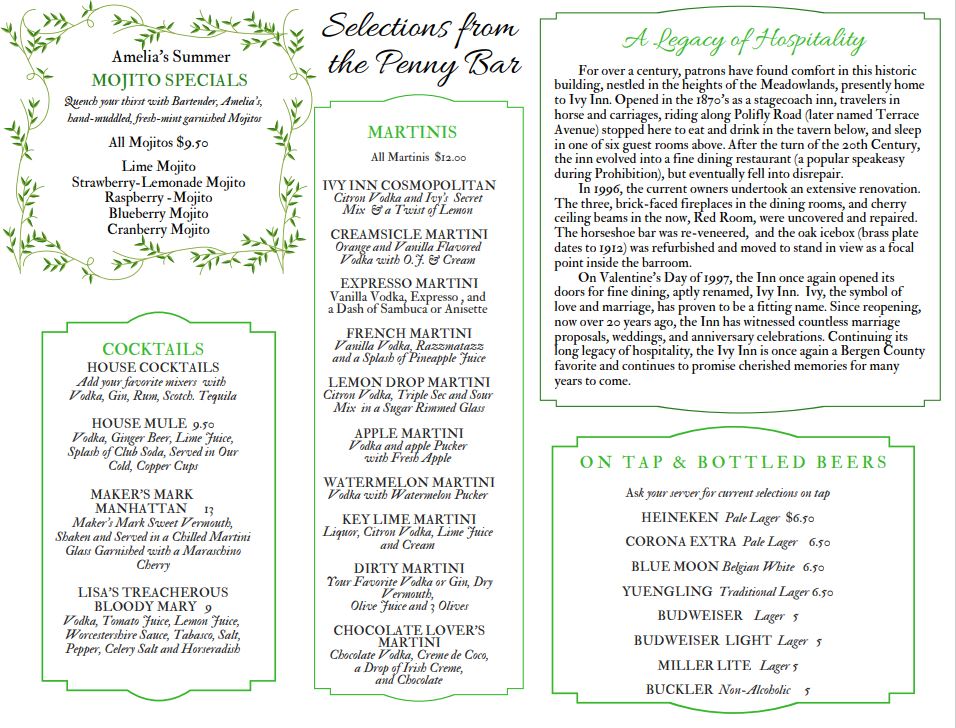 Amelia's Summer
MOJITO SPECIALS
Quench your thirst with Bartender, Amelia's,
hand-muddled, fresh-mint garnished Mojitos
All Mojitos $9.50
Lime Mojito
Strawberry-Lemonade Mojito
Raspberry -Mojito
Blueberry Mojito
Cranberry Mojito
COCKTAILS
HOUSE COCKTAILS
Add your favorite mixers with
Vodka, Gin, Rum, Scotch. Tequila
HOUSE MULE 9.50
Vodka, Ginger Beer, Lime Juice,
Splash of Club Soda, Served in Our
Cold, Copper Cups
MAKER'S MARK
MANHATTAN 13
Maker's Mark Sweet Vermouth,
Shaken and Served in a Chilled Martini
Glass Garnished with a Maraschino
Cherry
LISA'S TREACHEROUS
BLOODY MARY 9
Vodka, Tomato Juice, Lemon Juice,
Worcestershire Sauce, Tabasco, Salt,
Pepper, Celery Salt and Horseradish
Selections from
the Penny Bar
MARTINIS
All Martinis $12.00
IVY INN COSMOPOLITAN
Citron Vodka and Ivy's Secret
Mix & a Twist of Lemon
CREAMSICLE MARTINI
Orange and Vanilla Flavored
Vodka with O.J. & Cream
EXPRESSO MARTINI
Vanilla Vodka, Expresso , and
a Dash of Sambuca or Anisette
FRENCH MARTINI
Vanilla Vodka, Razzmatazz
and a Splash of Pineapple Juice
LEMON DROP MARTINI
Citron Vodka, Triple Sec and Sour
Mix in a Sugar Rimmed Glass
APPLE MARTINI
Vodka and apple Pucker
with Fresh Apple
WATERMELON MARTINI
Vodka with Watermelon Pucker
KEY LIME MARTINI
Liquor, Citron Vodka, Lime Juice
and Cream
DIRTY MARTINI
Your Favorite Vodka or Gin, Dry
Vermouth,
Olive Juice and 3 Olives
CHOCOLATE LOVER'S
MARTINI
Chocolate Vodka, Creme de Coco,
a Drop of Irish Creme,
and Chocolate
A Legacy of Hospitality
For over a century, patrons have found comfort in this historic
building, nestled in the heights of the Meadowlands, presently home
to Ivy Inn. Opened in the 1870's as a stagecoach inn, travelers in
horse and carriages, riding along Polifly Road (later named Terrace
Avenue) stopped here to eat and drink in the tavern below, and sleep
in one of six guest rooms above. After the turn of the 20th Century,
the inn evolved into a fine dining restaurant (a popular speakeasy
during Prohibition), but eventually fell into disrepair.
In 1996, the current owners undertook an extensive renovation.
The three, brick-faced fireplaces in the dining rooms, and cherry
ceiling beams in the now, Red Room, were uncovered and repaired.
The horseshoe bar was re-veneered, and the oak icebox (brass plate
dates to 1912) was refurbished and moved to stand in view as a focal
point inside the barroom.
On Valentine's Day of 1997, the Inn once again opened its
doors for fine dining, aptly renamed, Ivy Inn. Ivy, the symbol of
love and marriage, has proven to be a fitting name. Since reopening,
now over 20 years ago, the Inn has witnessed countless marriage
proposals, weddings, and anniversary celebrations. Continuing its
long legacy of hospitality, the Ivy Inn is once again a Bergen County
favorite and continues to promise cherished memories for many
years to come.
ON TAP & BOTTLED BEERS
Ask your server for current selections on tap
HEINEKEN Pale Lager $6.50
CORONA EXTRA Pale Lager 6.50
BLUE MOON Belgian White 6.50
YUENGLING Traditional Lager 6.50
BUDWEISER Lager 5
BUDWEISER LIGHT Lager 5
MILLER LITE Lager 5
BUCKLER Non-Alcoholic 5